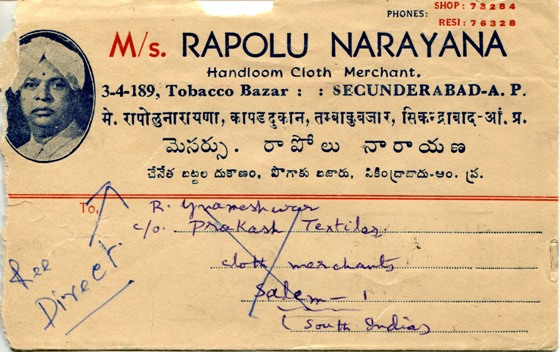 PHONES: SHOP: 73284
RESI: 76328
M/s. RAPOLU NARAYANA
Handloom Cloth Merchant.
3-4-189, Tobacco Bazar : : SECUNDERABAD-A. P.
मे. रापोलुनारायणा, कापड दुकान, तम्बाकुबजार, सिकन्द्राबाद-आं. प्र.
మెసర్సు. రాపోలు నారాయణ
చేనేత బట్టల దుకాణం, పొగాకు బజారు, సికింద్రాబాదు-ఆం. ప్ర.
To, R. Gnaneshwar
c/o. Prakash Textiles
cloth merchants
Salem - 1
(South India)
Direct.